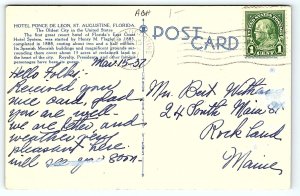 HOTEL PONCE DE LEON, ST. AUGUSTINE, FLORIDA.
The Oldest City in the United States
The first great resort hotel of Florida's East Coast
Hotel System, was started by Henry M. Flagler in 1885,
completed in 1888, costing about two and a half million.
Its Spanish, Moorish buildings and magnificent grounds surrounded by
acres of reclaimed land in the
heart of the city. Royalty, Presidents and other famous
personages have been its guests.
ABH
1-
POST CARD
1
Mar 15-37
Hello Folks:
Received your
nice card, glad
you are well.
we are fine and
weather very
pleasant here.
will see you soon-
Mrs. Bert
24 South Main St
Rockland
Maine